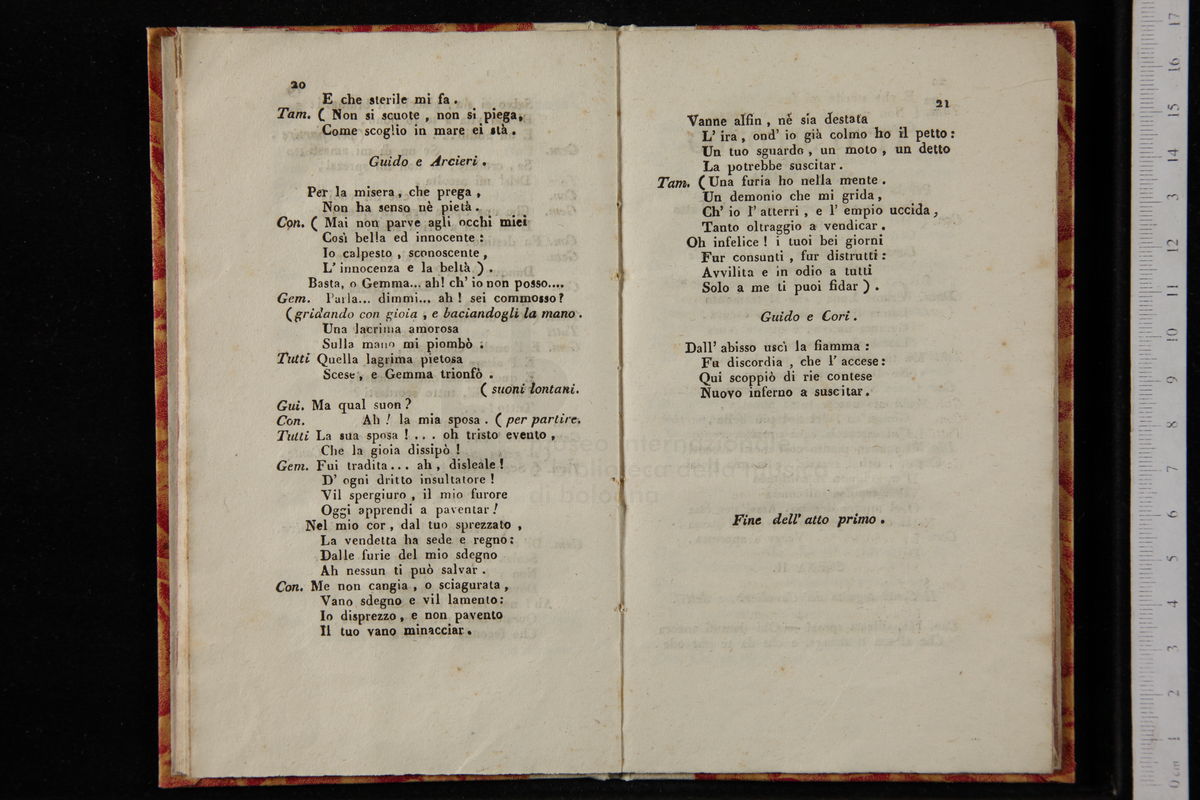 20
E che sterile mi fa .
Tam. ( Non si scuote , non si piega,
Come scoglio in mare ei stà .
Guido e Arcieri .
Per la misera, che prega ,
Non ha senso nè pietà .
Con. ( Mai non parve agli occhi miei
Così bella ed innocente :
Io calpesto , sconoscente ,
L' innocenza e la beltà ) .
Basta, o Gemma... ah! ch' io non posso....
Gem. Parla... dimmi... ah ! sei commosso?
( gridando con gioia , e baciandogli la mano .
Una lacrima amorosa
Sulla mano mi piombò :
Tutti Quella lagrima pietosa
Scese , e Gemma trionfò .
( suoni lontani.
Gui. Ma qual suon ?
Con. Ah ! la mia sposa . ( per partire.
Tutti La sua sposa ! ... oh tristo evento ,
Che la gioia dissipò !
Gem. Fui tradita... ah , disleale !
D' ogni dritto insultatore !
Vil spergiuro , il mio furore
Oggi apprendi a paventar !
Nel mio cor , dal tuo sprezzato ,
La vendetta ha sede e regno:
Dalle furie del mio sdegno
Ah nessun ti può salvar .
Con. Me non cangia , o sciagurata ,
Vano sdegno e vil lamento:
Io disprezzo , e non pavento
Il tuo vano minacciar .
21
Vanne alfin , né sia destata
L' ira , ond' io già colmo ho il petto :
Un tuo sguardo , un moto , un detto
La potrebbe suscitar .
Tam. ( Una furia ho nella mente .
Un demonio che mi grida ,
Ch' io l' atterri , e l' empio uccida ,
Tanto oltraggio a vendicar .
Oh infelice ! i tuoi bei giorni
Fur consunti , fur distrutti :
Avvilita e in odio a tutti
Solo a me ti puoi fidar ) .
Guido e Cori .
Dall' abisso uscì la fiamma :
Fu discordia , che l' accese :
Qui scoppiò di rie contese
Nuovo inferno a suscitar .
Fine dell' atto primo .
museo internazionale
e biblioteca della musica
di bologna
0 cm 1 2 3 4 5 6 7 8 9 10 11 12 13 14 15 16 17